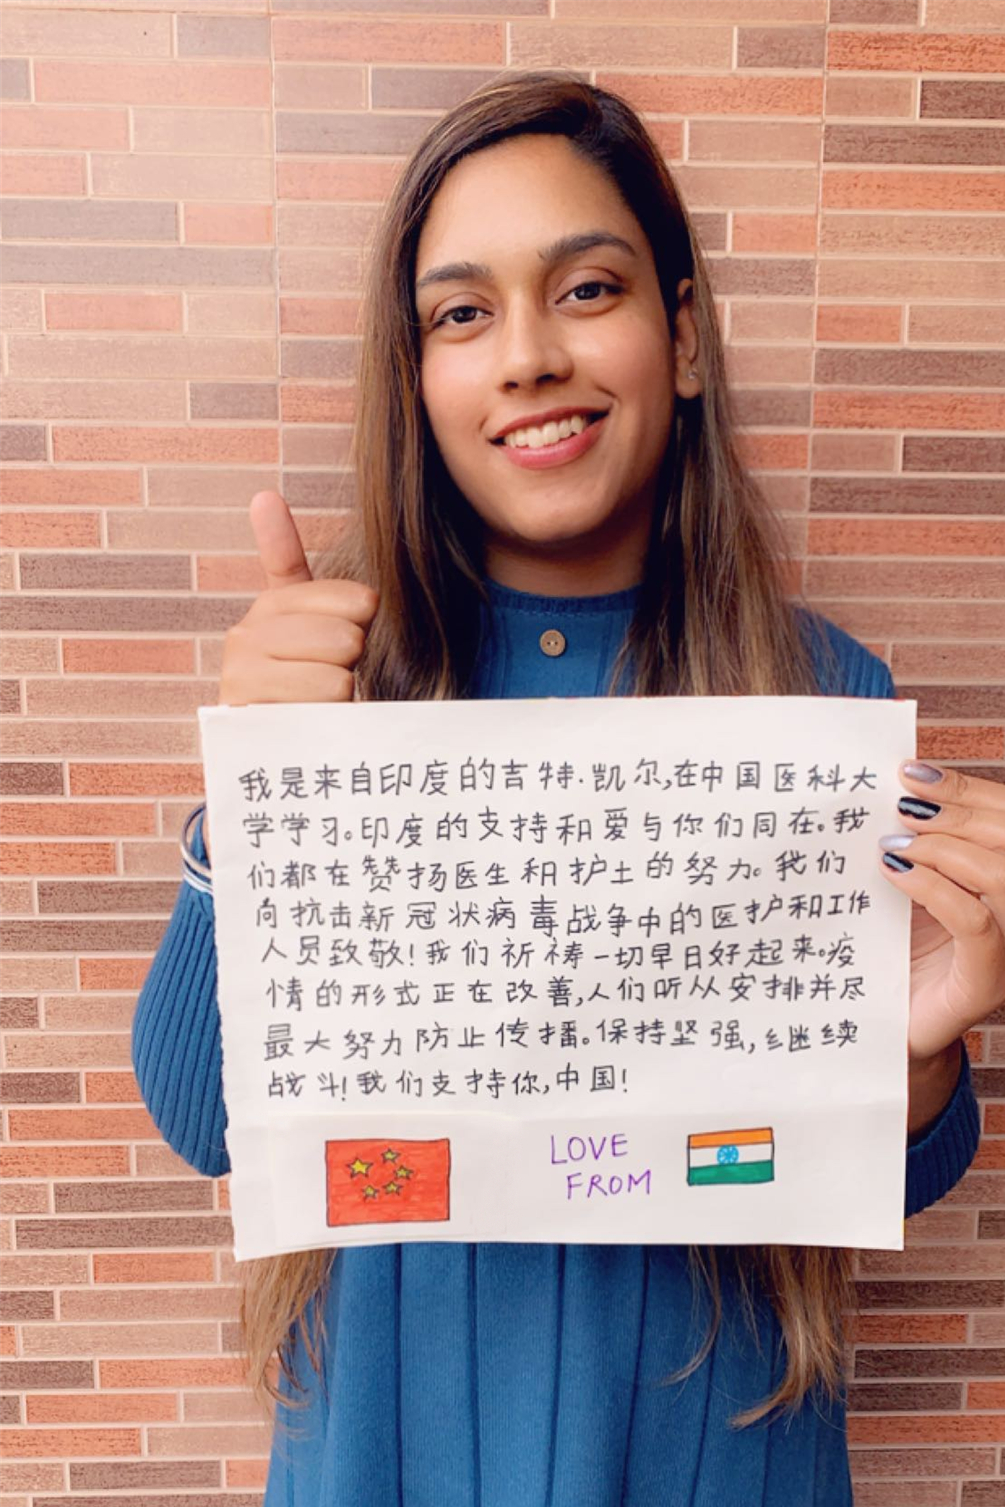 我是来自印度的吉特·凯尔,在中国医科大
学学习。印度的支持和爱与你们同在。我
们都在赞扬医生和护士的努力。我们
向抗击新冠状病毒战争中的医护和工作
人员致敬!我们祈祷一切早日好起来。疫
情的形式正在改善,人们听从安排并尽
最大努力防止传播。保持坚强,继续
战斗!我们支持你,中国!
LOVE
FROM